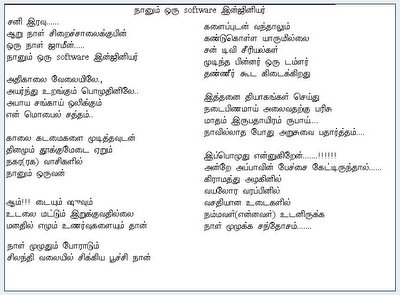 நானும் ஒரு software இன்ஜினியர்
சனி இரவு.....
ஆறு நாள் சிறைச்சாலைக்குபின்
ஒரு நாள் ஜாமீன்.....
நானும் ஒரு software இன்ஜினியர்
அதிகாலை வேலையிலே.,
அயர்ந்து உறங்கும் பொழுதினிலே..
அபாய சங்காய் ஒலிக்கும்
என் மொபைல் சத்தம்..
காலை கடமைகளை முடித்தவுடன்
தினமும் தூக்குமேடை ஏறும்
நகர(ரக) வாசிகளில்
நானும் ஒருவன்
ஆம்!!! டையும் ஷுவும்
உடலை மட்டும் இறுக்குவதில்லை
மனதில் எழும் உணர்வுகளையும் தான்
நாள் முழுதும் போராடும்
சிலந்தி வலையில் சிக்கிய பூச்சி நான்
களைப்புடன் வந்தாலும்
கண்டுகொள்ள யாருமில்லை
சன் டிவி சீரியல்கள்
முடிந்த பின்னர் ஒரு டம்ளர்
தண்ணீர் கூட கிடைக்கிறது
இத்தனை தியாகங்கள் செய்து
நடைபிணமாய் அலைவதற்கு பரிசு
மாதம் இருபதாயிரம் ரூபாய்....
நாவில்லாத போது அறுசுவை பதார்த்தம்....
இப்பொழுது என்னுகிறேன்.......!!!!!!
அன்றே அப்பாவின் பேச்சை கேட்டிருந்தால்......
கிராமத்து அழகினில்
வயலோர வரப்பினில்
வசதியான உடைகளில்
நம்மவள்(என்னவள்) உடனிருக்க
நாள் முழுக்க சந்தோசம்.......